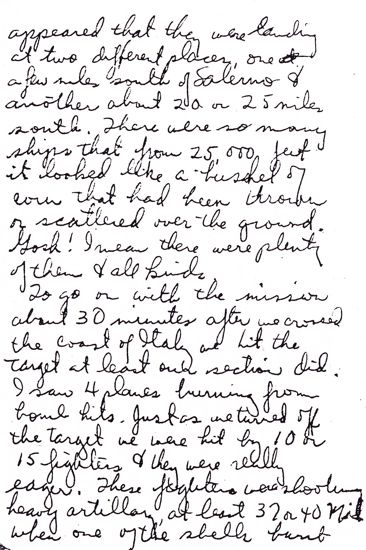 appeared that they were landing
at two different places, one
a few miles south of Salerno &
another about 20 or 25 miles
south. There were so many
ships that from 25,000 feet
it looked like a bushel of
corn that had been thrown
or scattered over the ground.
Gosh! I mean there were plenty
of them & all kinds.
To go on with the mission
about 30 minutes after we crossed
the coast of Italy we hit the
target at least our section did.
I saw 4 planes burning from
bomb hits. Just as we turned off
the target we were hit by 10 or
15 fighters & they were really
eager. These fighters were shooting
heavy artillary, at least 37 or 40 Mil
when one of the shells burst